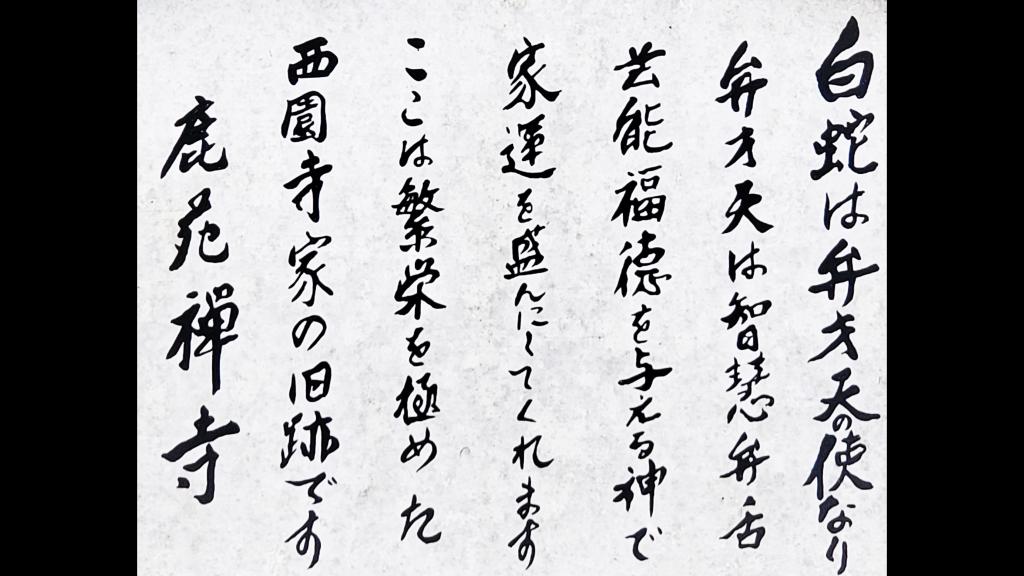 白蛇は弁才天の使なり
弁才天は智慧弁舌
芸能福徳を与える神で
家運を盛んにしてくれます
ここは繁栄を極めた
西園寺家の旧跡です
鹿苑禅寺